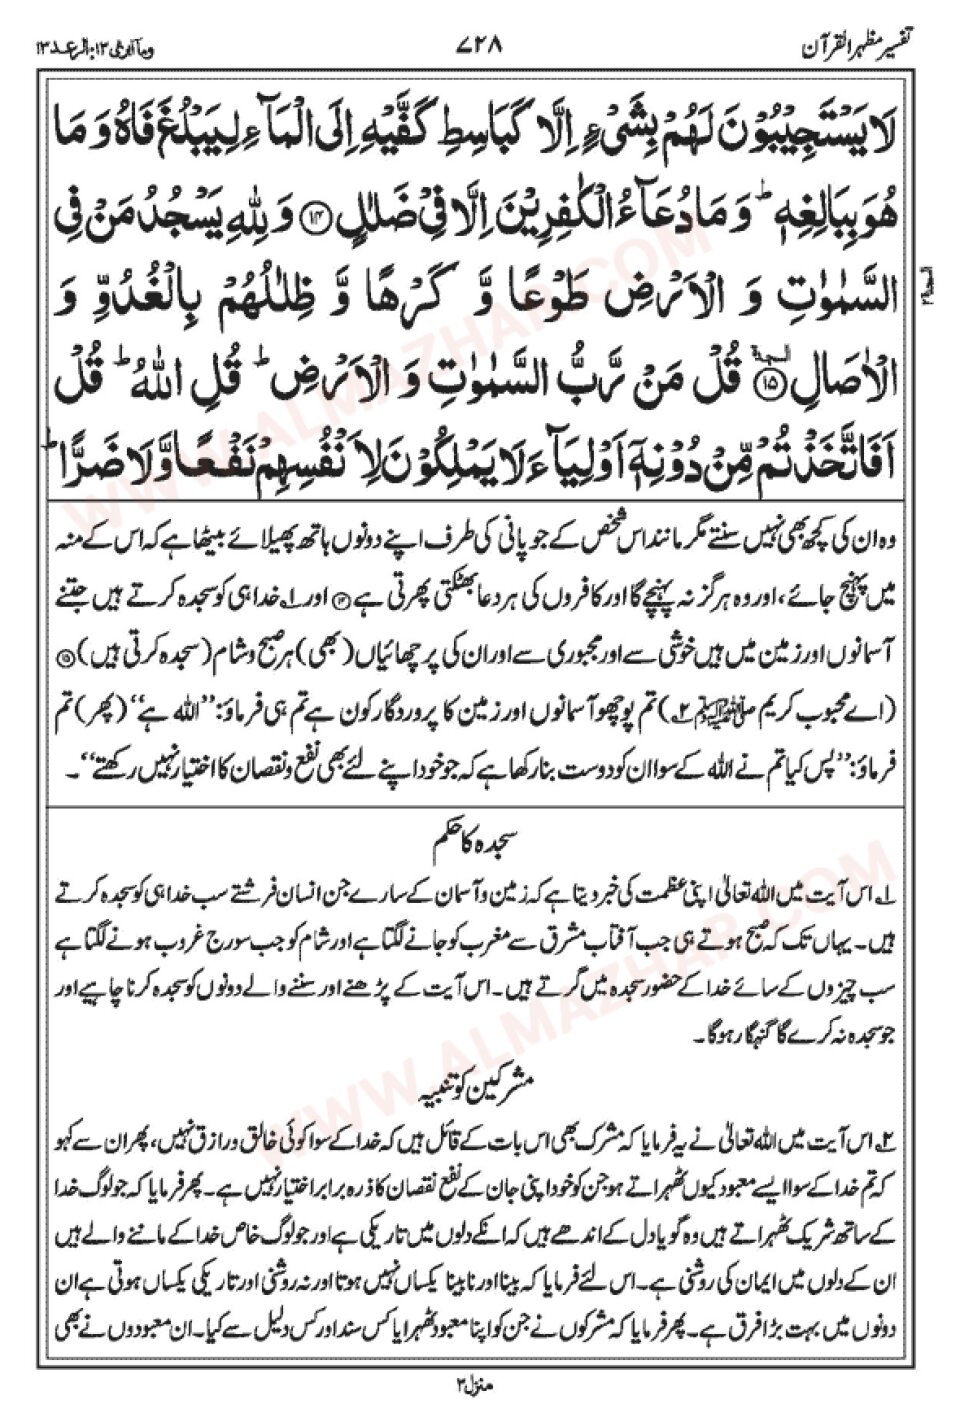 تفسیر مظہر القرآن
۷۲۸
وما ابرئ ۱۳: الرعد ۱۳
لَا يَسْتَجِيْبُوْنَ لَهُمْ بِشَیْءٍ اِلَّا كَبَاسِطِ كَفَّيْهِ اِلَى الْمَآءِ لِيَبْلُغَ فَاهُ وَ مَا
هُوَ بِبَالِغِهٖ ؕ وَ مَا دُعَآءُ الْكٰفِرِيْنَ اِلَّا فِیْ ضَلٰلٍ ۝۱۴ وَ لِلّٰهِ يَسْجُدُ مَنْ فِی
السَّمٰوٰتِ وَ الْاَرْضِ طَوْعًا وَّ كَرْهًا وَّ ظِلٰلُهُمْ بِالْغُدُوِّ وَ
السجدة ۲
الْاٰصَالِ ۝۱۵ السجدة قُلْ مَنْ رَّبُّ السَّمٰوٰتِ وَ الْاَرْضِ ؕ قُلِ اللّٰهُ ؕ قُلْ
اَفَاتَّخَذْتُمْ مِّنْ دُوْنِهٖۤ اَوْلِيَآءَ لَا يَمْلِكُوْنَ لِاَنْفُسِهِمْ نَفْعًا وَّ لَا ضَرًّا ؕ
وہ ان کی کچھ بھی نہیں سنتے مگر مانند اس شخص کے جو پانی کی طرف اپنے دونوں ہاتھ پھیلائے بیٹھا ہے کہ اس کے منہ
میں پہنچ جائے، اور وہ ہرگز نہ پہنچے گا اور کافروں کی ہر دعا بھٹکتی پھرتی ہے ۝۱۴ اور ۱؎ خدا ہی کو سجدہ کرتے ہیں جتنے
آسمانوں اور زمین میں ہیں خوشی سے اور مجبوری سے اور ان کی پرچھائیاں (بھی) ہر صبح و شام (سجدہ کرتی ہیں) ۝۱۵
(اے محبوب کریم ﷺ ۲؎) تم پوچھو آسمانوں اور زمین کا پروردگار کون ہے تم ہی فرماؤ: ’’اللہ ہے‘‘ (پھر) تم
فرماؤ: ’’پس کیا تم نے اللہ کے سوا ان کو دوست بنا رکھا ہے کہ جو خود اپنے لئے بھی نفع و نقصان کا اختیار نہیں رکھتے‘‘۔
سجدہ کا حکم
۱؎ اس آیت میں اللہ تعالیٰ اپنی عظمت کی خبر دیتا ہے کہ زمین و آسمان کے سارے جن انسان فرشتے سب خدا ہی کو سجدہ کرتے
ہیں۔ یہاں تک کہ صبح ہوتے ہی جب آفتاب مشرق سے مغرب کو جانے لگتا ہے اور شام کو جب سورج غروب ہونے لگتا ہے
سب چیزوں کے سائے خدا کے حضور سجدہ میں گرتے ہیں۔ اس آیت کے پڑھنے اور سننے والے دونوں کو سجدہ کرنا چاہیے اور
جو سجدہ نہ کرے گا گنہگار ہوگا۔
مشرکین کو تنبیہ
۲؎ اس آیت میں اللہ تعالیٰ نے یہ فرمایا کہ مشرک بھی اس بات کے قائل ہیں کہ خدا کے سوا کوئی خالق و رازق نہیں، پھر ان سے کہو
کہ تم خدا کے سوا ایسے معبود کیوں ٹھہراتے ہو جن کو خود اپنی جان کے نفع نقصان کا ذرہ برابر اختیار نہیں ہے۔ پھر فرمایا کہ جو لوگ خدا
کے ساتھ شریک ٹھہراتے ہیں وہ گویا دل کے اندھے ہیں کہ انکے دلوں میں تاریکی ہے اور جو لوگ خاص خدا کے ماننے والے ہیں
ان کے دلوں میں ایمان کی روشنی ہے۔ اس لئے فرمایا کہ بینا اور نابینا یکساں نہیں ہوتا اور نہ روشنی اور تاریکی یکساں ہوتی ہے ان
دونوں میں بہت بڑا فرق ہے۔ پھر فرمایا کہ مشرکوں نے جن کو اپنا معبود ٹھہرایا کس سند اور کس دلیل سے کیا۔ ان معبودوں نے بھی
منزل ۳
WWW.ALMAZHAR.COM
WWW.ALMAZHAR.COM